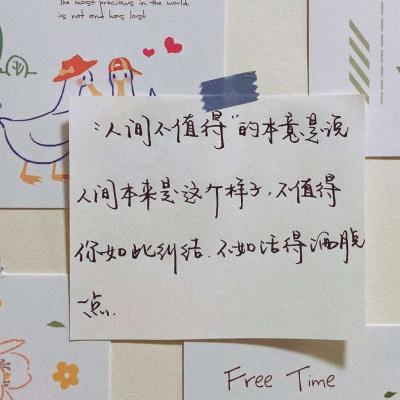 The most precious in the world.
is not and has lost
“人间不值得”的本意是说
人间本来是这个样子,不值得
你如此纠结.不如活得洒脱
一点.
Free Time